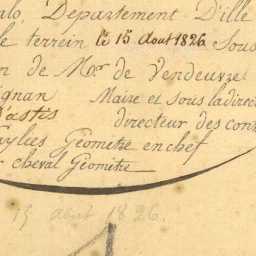 alo, Département D'Ille
le terrein le 15 Aout 1826 Sous
n de Mr. de Vendeuvre
ignan Maire et sous la direct
astis directeur des cont
Géometre en chef
r cheval Géometre
15 aout 1826.